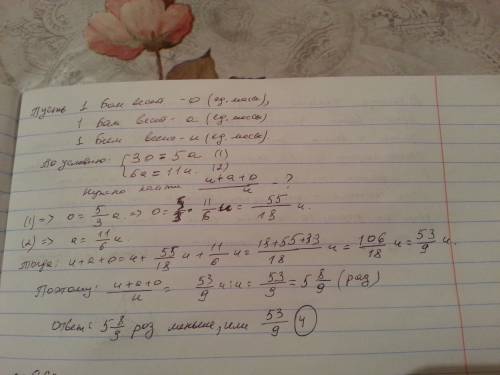 Пусть 1 Бом весит - о (ед. массы),
1 Бам весит - а (ед. массы)
1 Бим весит - и (ед. массы).
По условию: { 3о = 5а (1)
6а = 11и. (2)
Нужно найти (и+а+о)/и - ?
(1) => о = 5/3 а. => о = 5/3 · 11/6 и = 55/18 и.
(2) => а = 11/6 и.
Тогда: и+а+о = и + 55/18 и + 11/6 и = (18+55+33)/18 и = 106/18 и = 53/9 и.
Поэтому: (и+а+о)/и = 53/9 и : и = 53/9 = 5 8/9 (раз)
Ответ: 5 8/9 раз меньше, или 53/9 ч